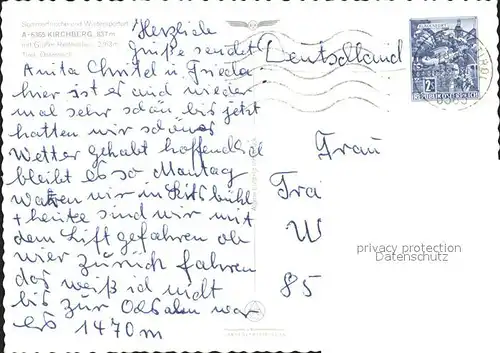 Sommerfrische und Wintersportort
A-6365 KIRCHBERG, 837 m
Tirol, Österreich
Herzliche
Grüße sendet
Anita Christel u Frieda
hier ist es auch wieder
mal sehr schön bis jetzt
hatten wir schönes
Wetter gehabt hoffendlich
bleibt es so Montag
waren wir in Kitzbühl
+ heute sind wir mit
dem Lift gefahren ob
wier zurück fahren
das weiß ich nicht
bis zur war
es 1470 m
Deutschland
Frau
Fra
W
85
REPUBLIK ÖSTERREICH
privacy protection
Datenschutz